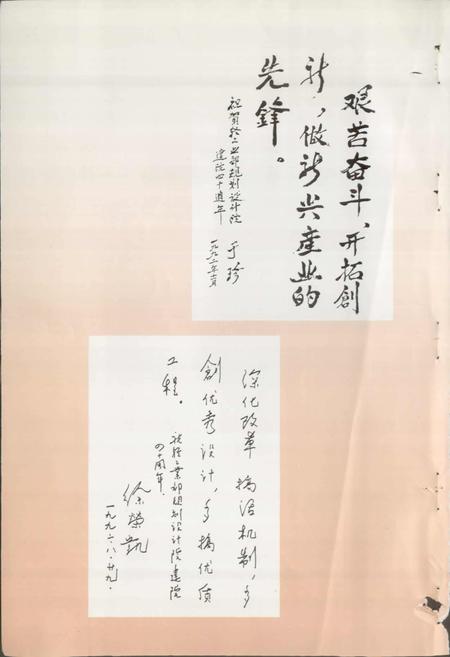 艰苦奋斗、开拓創
新,做新兴產业的
先鋒。
祝賀轻工业部规划设计院
建院四十週年
于珍
一九九二年十一月
深化改革 搞活机制,多
創优秀设计,多搞优质
工程。
祝轻工業部规划设计院建院
四十周年。
徐榮凱
一九九二·八·廿九·